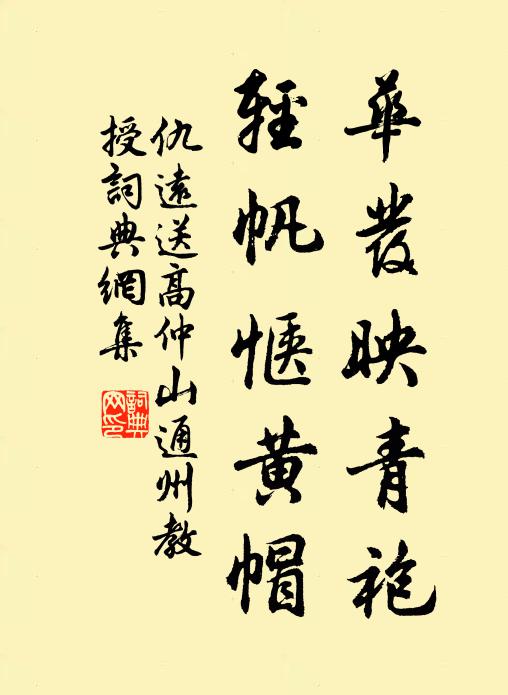 華發映青袍
輕帆愜黃帽
仇遠送高仲山通州教
授詞典網集
詞典
网印